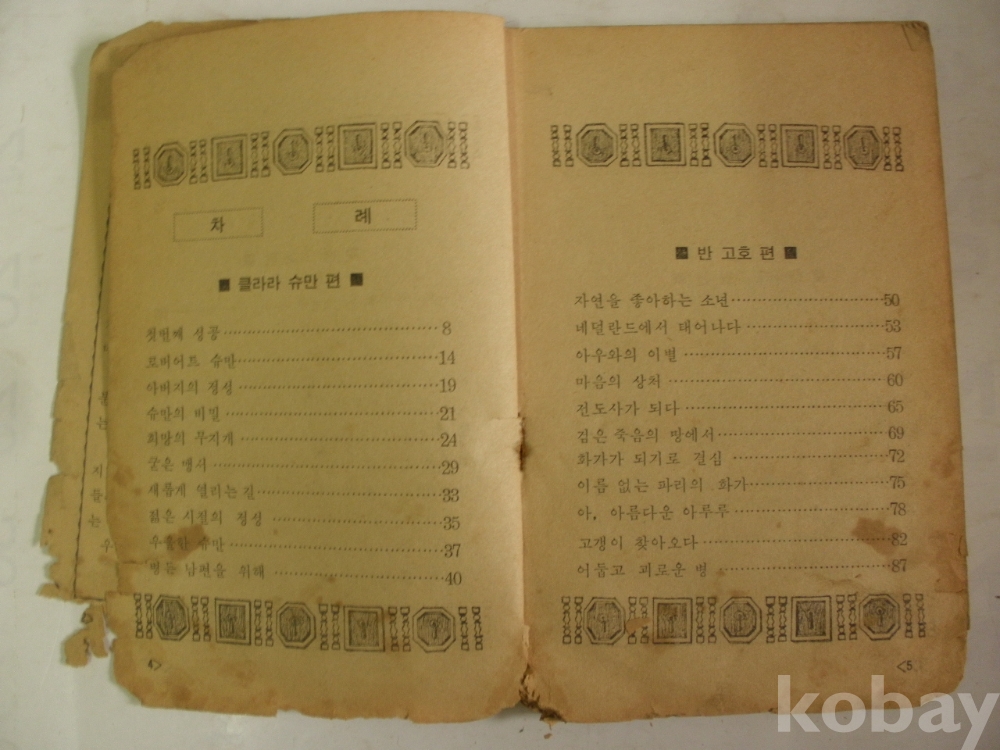 차 례
■ 클라라 슈만 편 ■
첫번째 성공 8
로버어트 슈만 14
아버지의 정성 19
슈만의 비밀 21
희망의 무지개 24
굳은 맹서 29
새롭게 열리는 길 33
젊은 시절의 정성 35
우울한 슈만 37
병든 남편을 위해 40
4>
■ 반 고호 편 ■
자연을 좋아하는 소년 50
네덜란드에서 태어나다 53
아우와의 이별 57
마음의 상처 60
전도사가 되다 65
검은 죽음의 땅에서 69
화가가 되기로 결심 72
이름 없는 파리의 화가 75
아, 아름다운 아루루 78
고갱이 찾아오다 82
어둡고 괴로운 병 87
<5
는
지
들
는
kobay